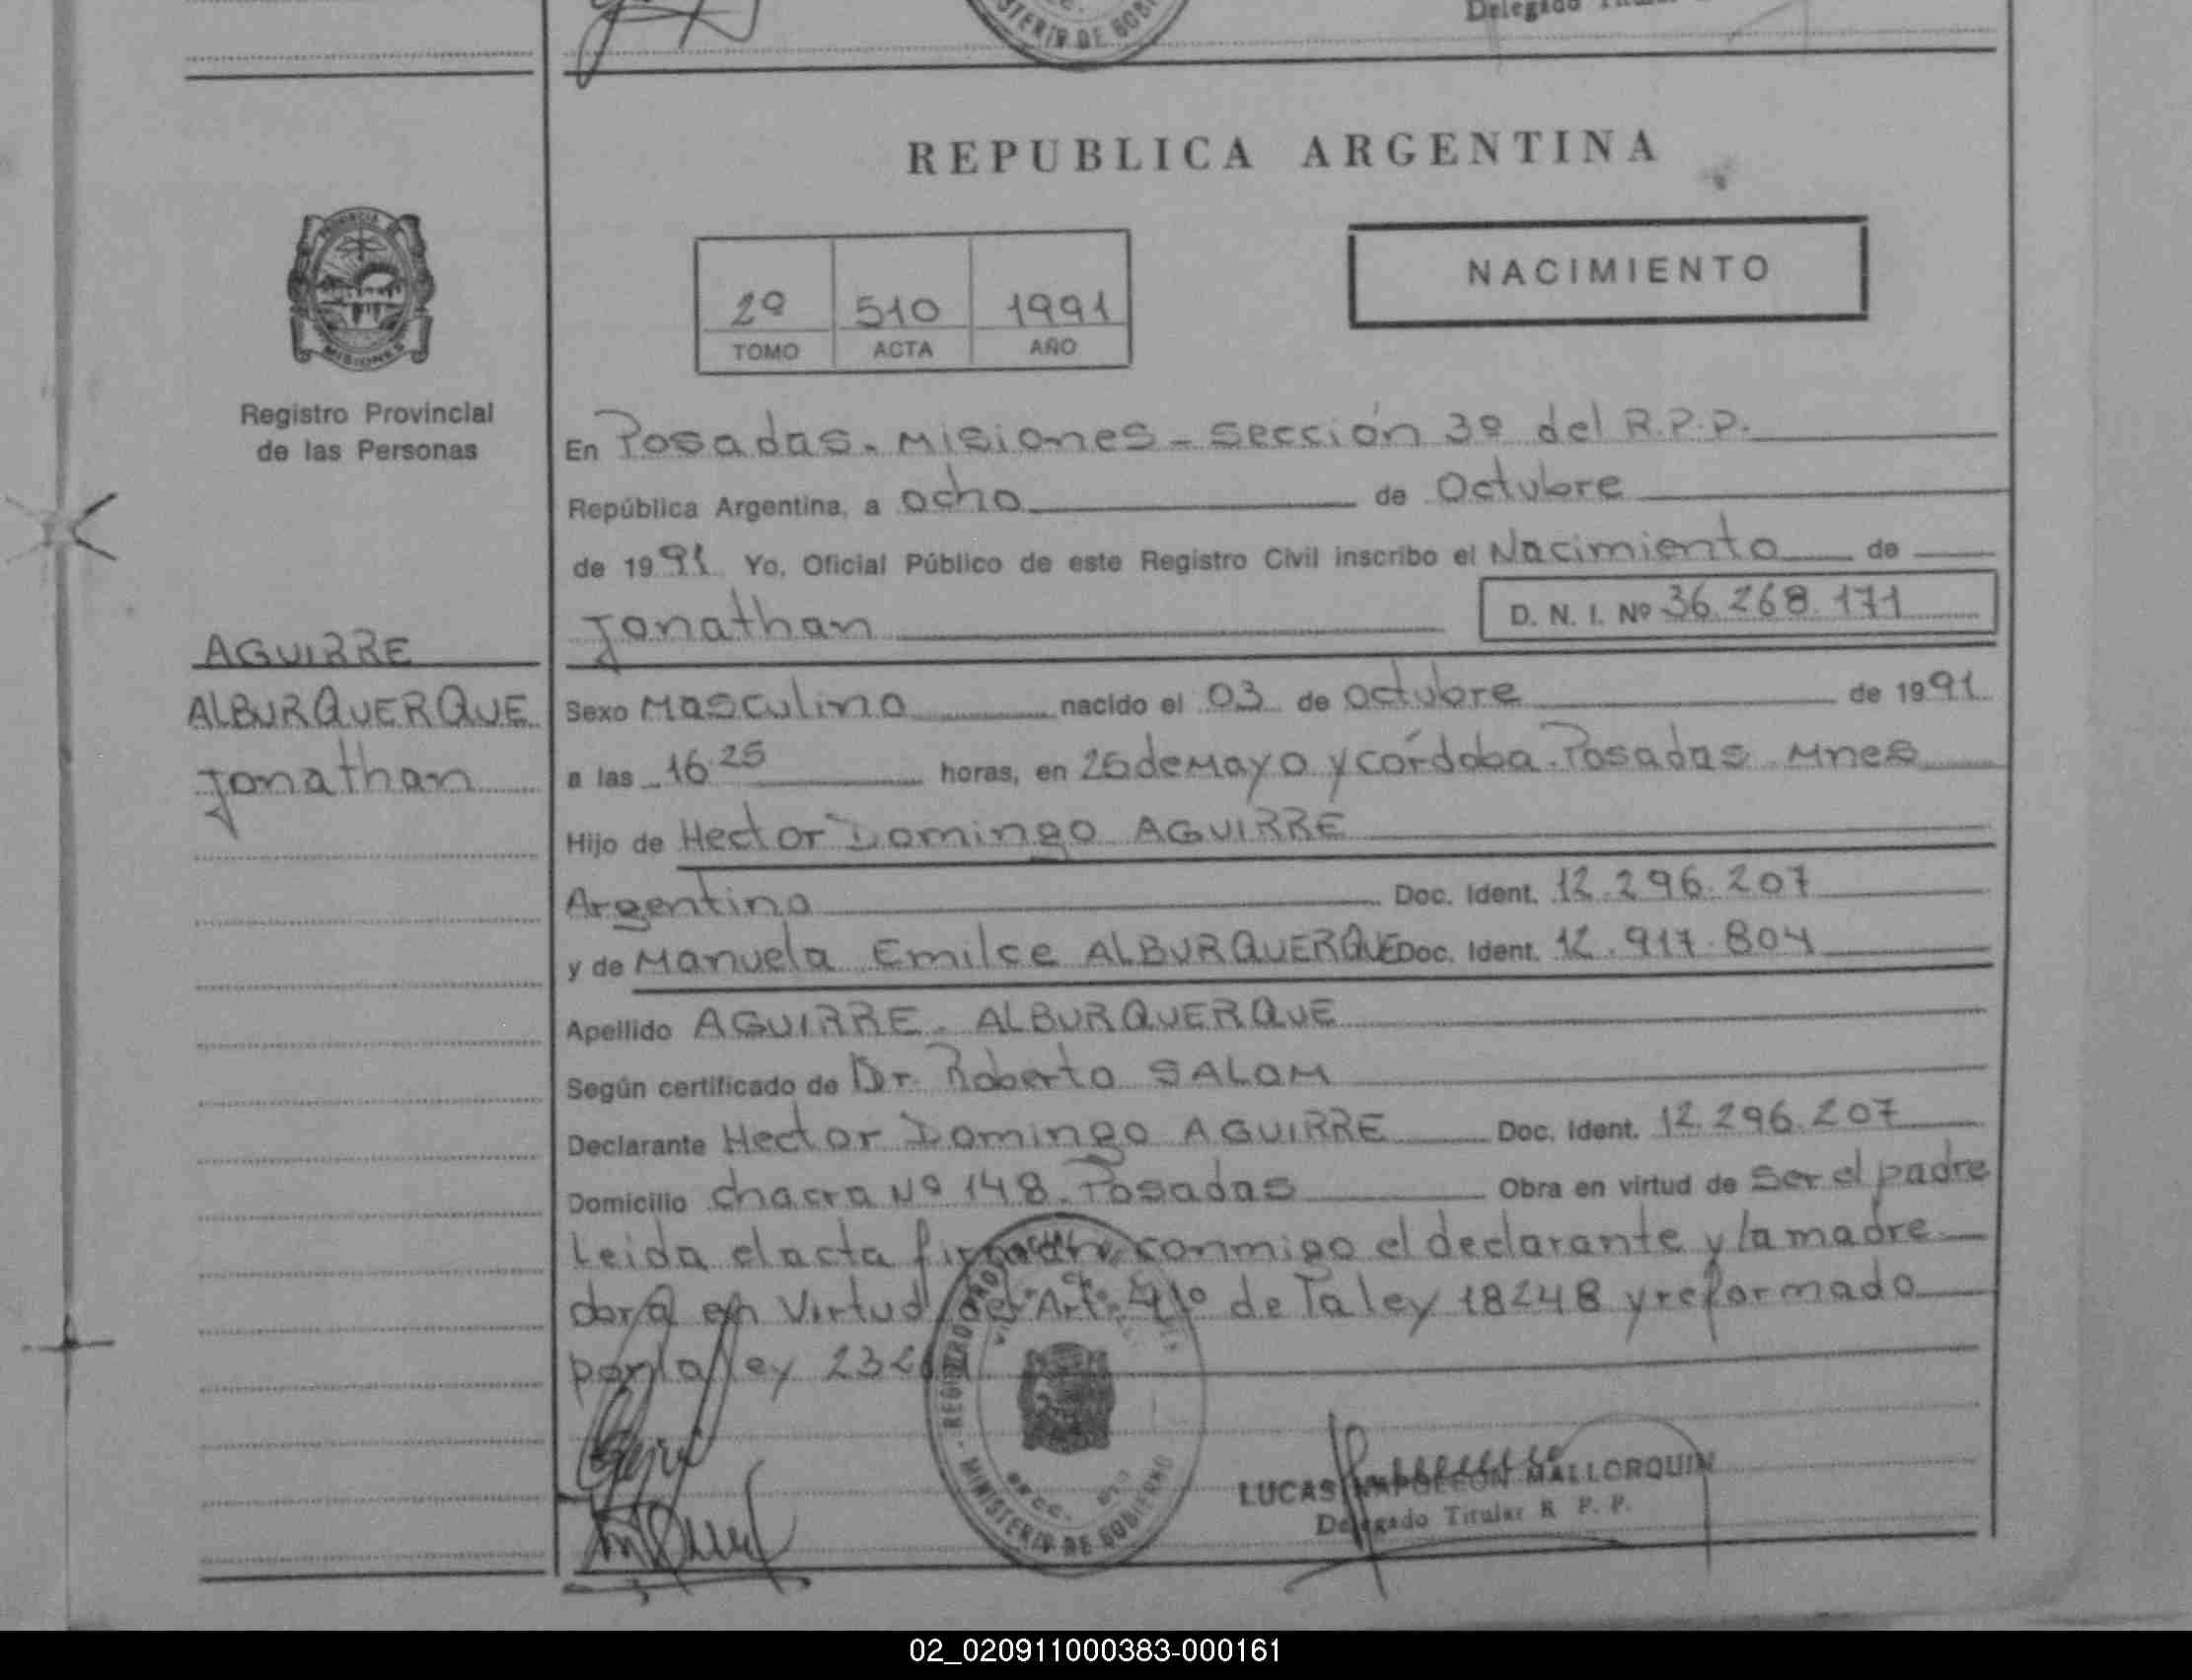 Delegado Titular
MINISTERIO DE GOBIERNO
REPUBLICA ARGENTINA
PROVINCIA
MISIONES
NACIMIENTO
2º 510 1991
TOMO ACTA AÑO
Registro Provincial
de las Personas
En Posadas. Misiones - sección 3º del R.P.P.
República Argentina, a ocho de Octubre
de 1991 Yo, Oficial Público de este Registro Civil inscribo el Nacimiento de
Jonathan D. N. I. Nº 36.268.171
AGUIRRE
ALBURQUERQUE
Jonathan
Sexo Masculino nacido el 03 de octubre de 1991
a las 16.25 horas, en 25 de Mayo y córdoba. Posadas Mnes
Hijo de Hector Domingo AGUIRRE
Argentino Doc. Ident. 12.296.207
y de Manuela Emilce ALBURQUERQUE Doc. Ident. 12.917.804
Apellido AGUIRRE - ALBURQUERQUE
Según certificado de Dr. Roberto SALOM
Declarante Hector Domingo AGUIRRE Doc. Ident. 12.296.207
Domicilio chacra Nº 148. Posadas Obra en virtud de ser el padre
Leida el acta firman conmigo el declarante y la madre
obra en virtud del Art. de la ley 18248 y reformado
por la ley
REGISTRO PROVINCIAL
MINISTERIO DE GOBIERNO
LUCAS NAPOLEON MALLORQUIN
Delegado Titular R P. P.
02_020911000383-000161